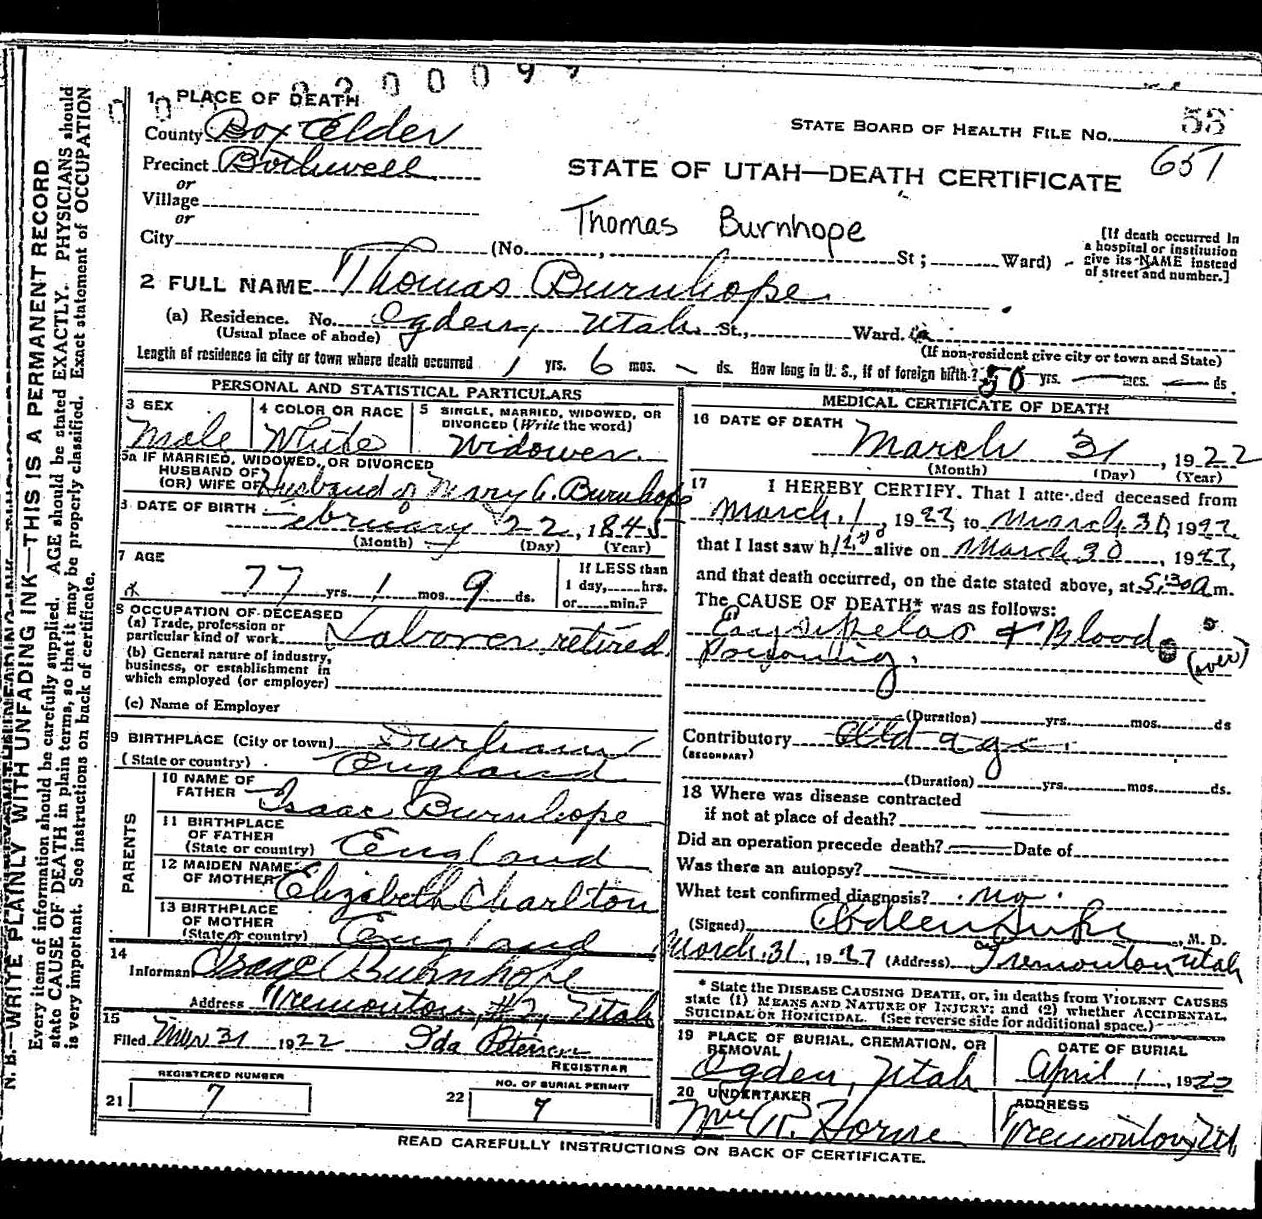 1 PLACE OF DEATH
County Box Elder
Precinct Bothwell
or
Village
or
City (No. , St; Ward)
STATE BOARD OF HEALTH FILE No. 53
651
STATE OF UTAH—DEATH CERTIFICATE
Thomas Burnhope
[If death occurred in
a hospital or institution
give its NAME instead
of street and number.]
2 FULL NAME Thomas Burnhope
(a) Residence. No. Ogden, Utah St., Ward.
(Usual place of abode)
(If non-resident give city or town and State)
Length of residence in city or town where death occurred 1 yrs. 6 mos. ds. How long in U. S., if of foreign birth? 50 yrs. mos. ds.
PERSONAL AND STATISTICAL PARTICULARS
3 SEX
Male
4 COLOR OR RACE
White
5 SINGLE, MARRIED, WIDOWED, OR
DIVORCED (Write the word)
Widower.
5a IF MARRIED, WIDOWED, OR DIVORCED
HUSBAND OF
(OR) WIFE OF Husband of Mary C. Burnhope
DATE OF BIRTH February 22, 1845
(Month) (Day) (Year)
7 AGE
77 yrs. 1 mos. 9 ds.
If LESS than
1 day, hrs.
or min.?
8 OCCUPATION OF DECEASED
(a) Trade, profession or
particular kind of work Laborer retired
(b) General nature of industry,
business, or establishment in
which employed (or employer)
(c) Name of Employer
9 BIRTHPLACE (City or town) Durham
(State or country) England
PARENTS
10 NAME OF
FATHER Isaac Burnhope
11 BIRTHPLACE
OF FATHER
(State or country) England
12 MAIDEN NAME
OF MOTHER Elizabeth Charlton
13 BIRTHPLACE
OF MOTHER
(State or country) England
14
Informant Isaac Burnhope
Address Tremonton, #2, Utah
15
Filed Mar 31 1922 Ida Peterson
REGISTRAR
REGISTERED NUMBER
21 7
NO. OF BURIAL PERMIT
22 7
MEDICAL CERTIFICATE OF DEATH
16 DATE OF DEATH
March 31, 1922
(Month) (Day) (Year)
17 I HEREBY CERTIFY, That I attended deceased from
March 1, 1922 to March 30, 1922
that I last saw him alive on March 30, 1922,
and that death occurred, on the date stated above, at 5:30 a m.
The CAUSE OF DEATH* was as follows:
Erysipelas & Blood
Poisoning. (over)
(Duration) yrs. mos. ds
Contributory Old age.
(SECONDARY)
(Duration) yrs. mos. ds.
18 Where was disease contracted
if not at place of death?
Did an operation precede death? Date of
Was there an autopsy?
What test confirmed diagnosis? no.
(Signed) M. D.
March 31, 1922 (Address) Tremonton Utah
* State the DISEASE CAUSING DEATH, or, in deaths from VIOLENT CAUSES
state (1) MEANS AND NATURE OF INJURY; and (2) whether ACCIDENTAL,
SUICIDAL OR HOMICIDAL. (See reverse side for additional space.)
19 PLACE OF BURIAL, CREMATION, OR
REMOVAL
Ogden, Utah
DATE OF BURIAL
April 1, 1922
20 UNDERTAKER
R. Horne
ADDRESS
Tremonton, Ut.
READ CAREFULLY INSTRUCTIONS ON BACK OF CERTIFICATE.
N. B.—WRITE PLAINLY WITH UNFADING INK—THIS IS A PERMANENT RECORD
Every item of information should be carefully supplied. AGE should be stated EXACTLY. PHYSICIANS should
state CAUSE OF DEATH in plain terms, so that it may be properly classified. Exact statement of OCCUPATION
is very important. See instructions on back of certificate.